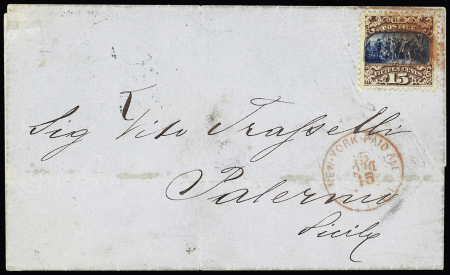 U.S.
POSTAGE
FIFTEEN CENTS
15
Sig Vito Trasselli
NEW-YORK PAID ALL
15
Palermo
Sicily